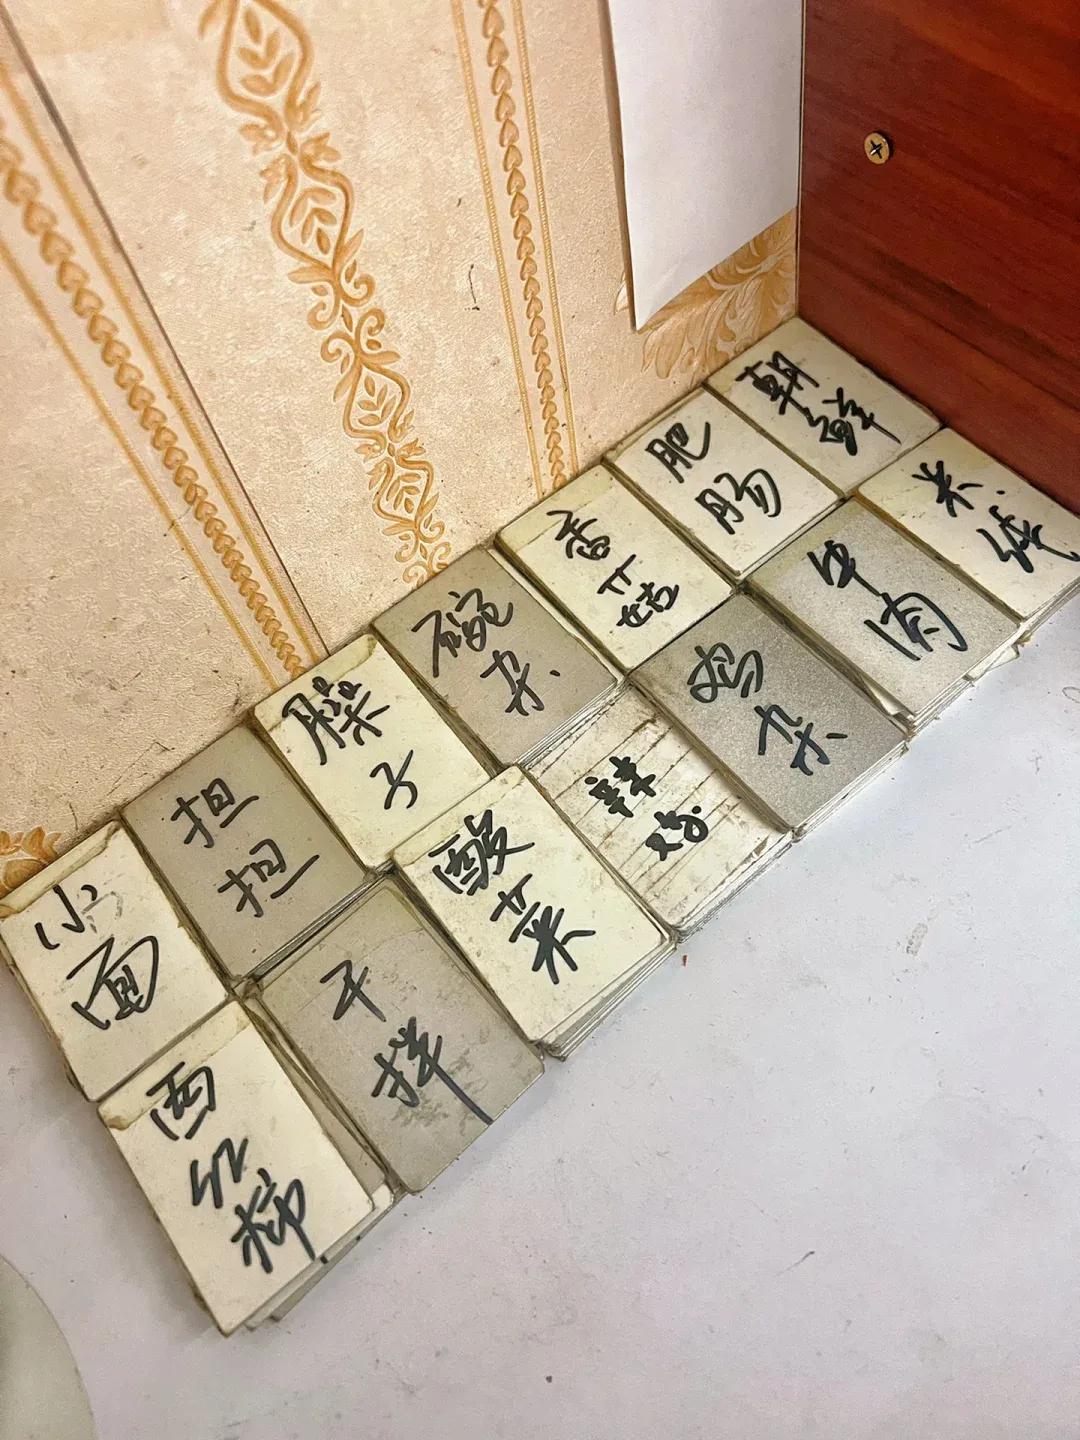 小面
担担
臊子
碗杂
香菇
肥肠
朝鲜
西红柿
干拌
酸菜
辣鸡
鸡杂
牛肉
米线